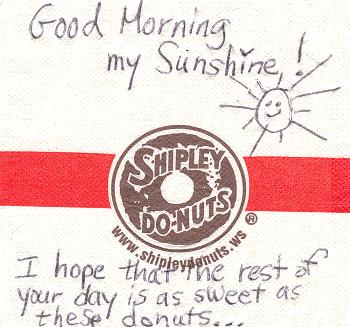 Good Morning
my Sunshine!
SHIPLEY
DO-NUTS
®
www.shipleydonuts.ws
I hope that the rest of
your day is as sweet as
these donuts...